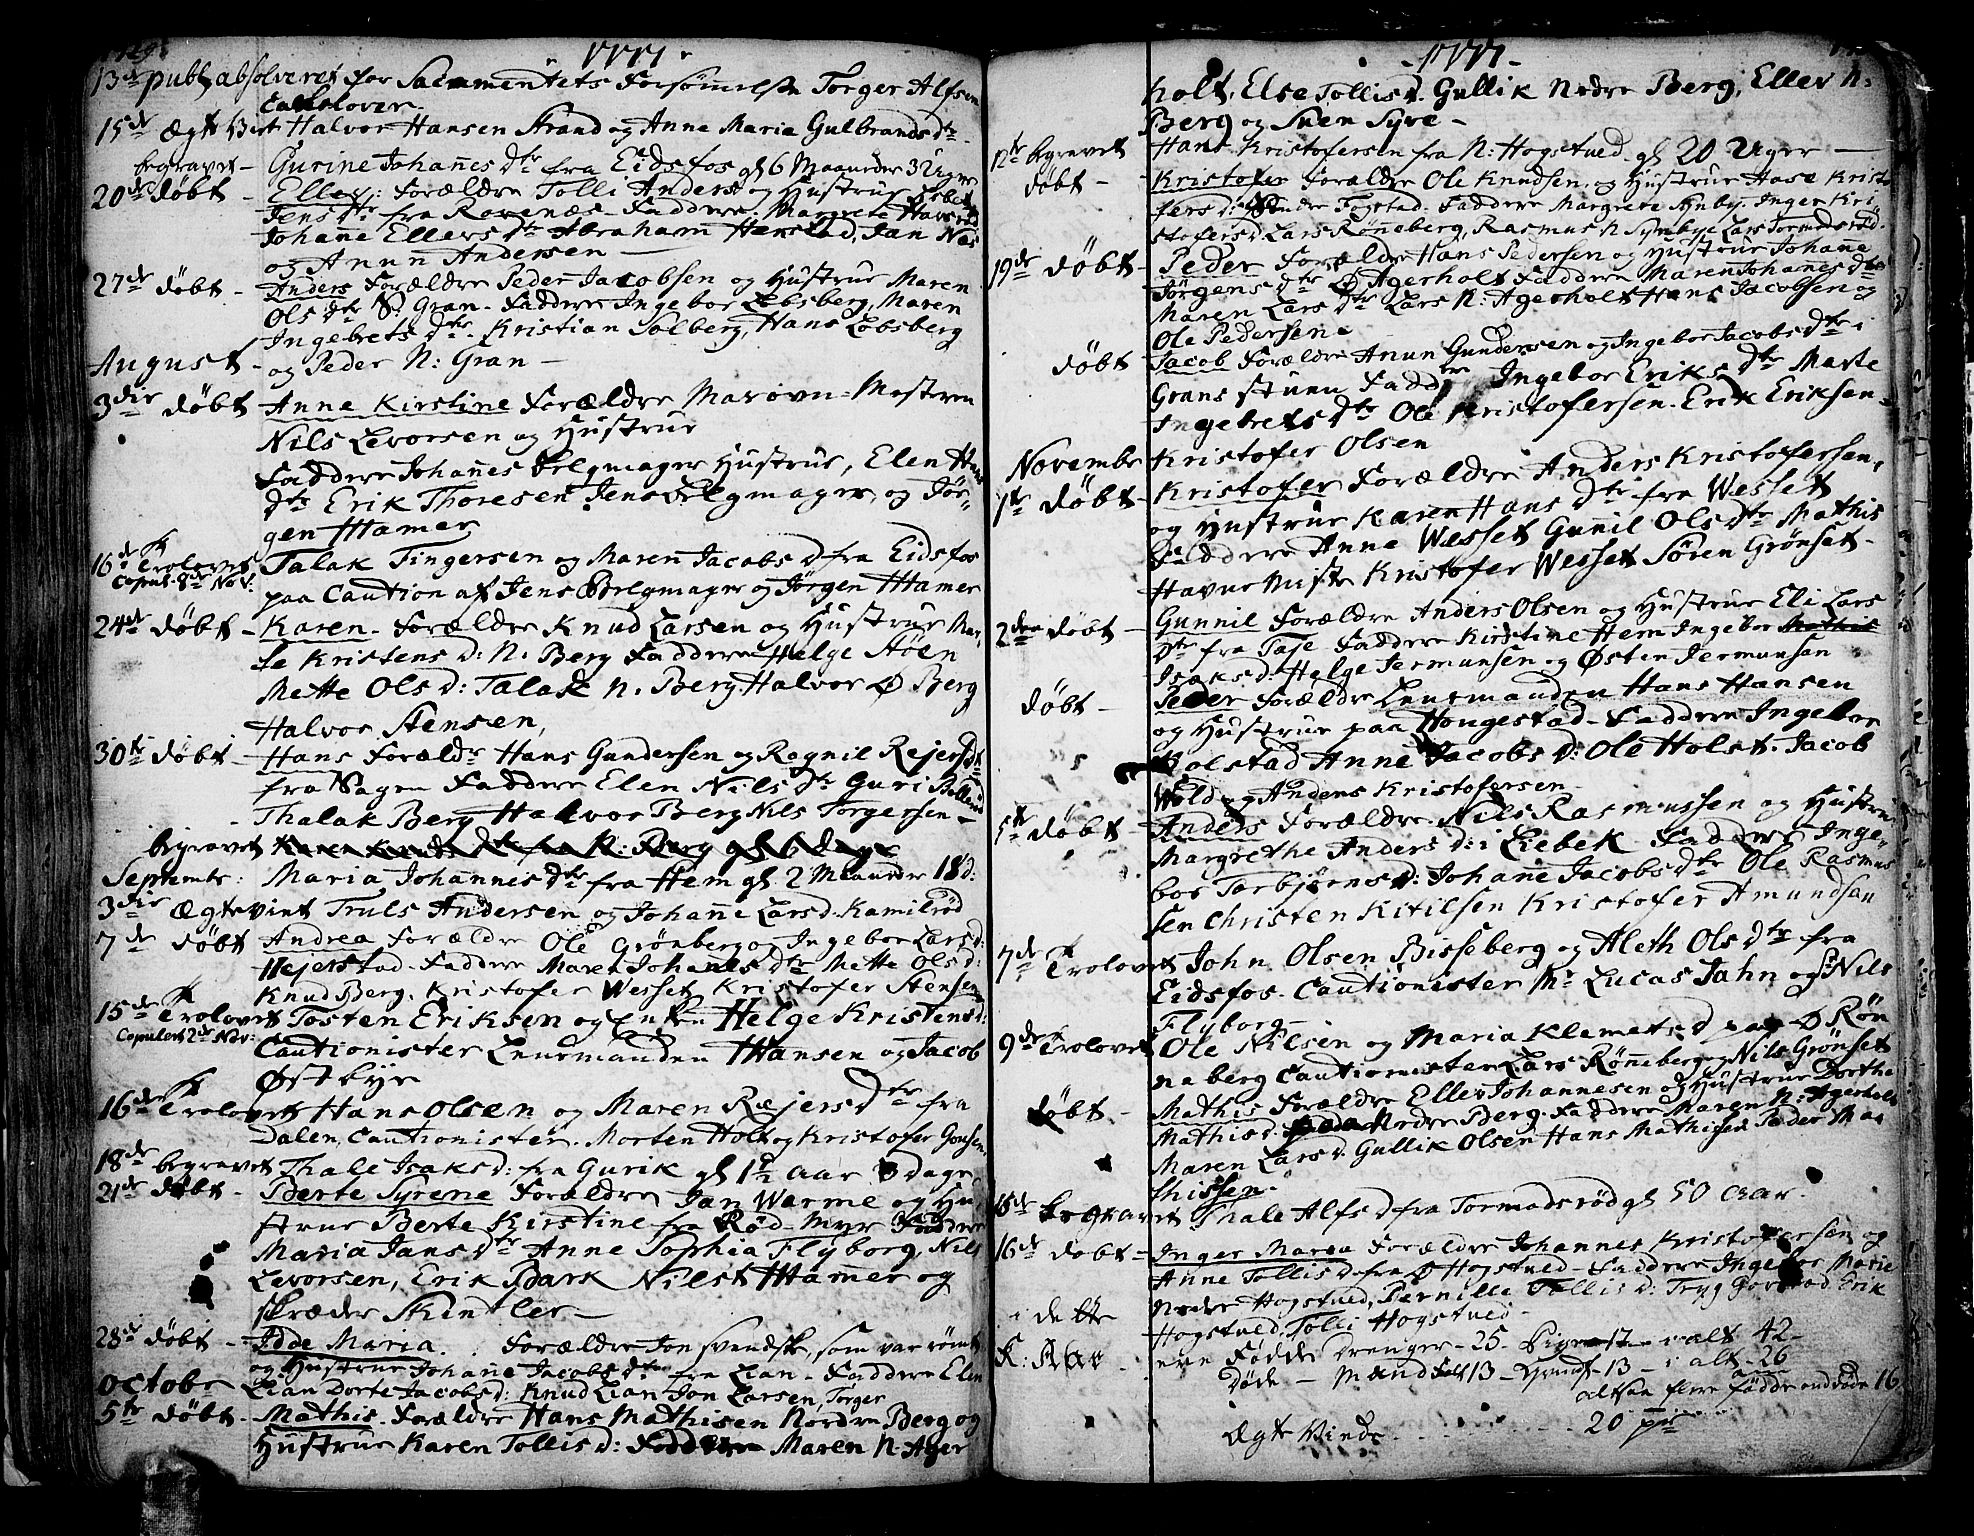 1777
13de publ. absolveret for Sacramentets Forsømelse Torger Alfsen
15de Ægte Halvor Hansen Strand og Anne Maria Gulbrandsdtr
begravet Gurine Johannesdtr fra Eidsfos gl 6 Maaneder 3 Uger
20de døbt Eller: Forældre Tolli Anders og Hustrue
Jensdtr fra Ravnæs. Faddere Margrete
Johanne Ellersdtr Abraham Hanstad, Jan Næs
og Anun Andersen
27de døbt Anders Forældre Peder Jacobsen og Hustrue Maren
Olsdtr S. Gran. Faddere Ingebor Lebsberg, Maren
Ingebretsdtr Kristian Solberg, Hans Løbsberg
August og Peder N: Gran
3die døbt Anne Kirstine Forældre Masovn-Mesteren
Nils Levorsen og Hustrue
Faddere Johannes Belgmagers Hustrue, Elen
dtr Erik Thoresen Jens Belgmager og Jør-
gen Hamer
16de Trolovet Talak Tingersen og Maren Jacobsd fra Eidsfos
Copul. 8de Nov: paa Caution af Jens Belgmager og Jørgen Hamer
24de døbt Karen. Forældre Knud Larsen og Hustrue Mar-
te Kristensd: N. Berg Faddere Helge Støen
Mette Olsd: Talak N. Berg Halvor Ø Berg
Halvor Stensen,
30te døbt Hans Forældr Hans Gundersen og Ragnil Rejersdtr
fra Sagen Faddere Elen Nilsdtr Guri
Thalak Berg Halvor Berg Nils Torgersen
begravet Karen Knudsdtr fra N: Berg gl 6 dage
Septembr: Maria Johannesdtr fra Hem gl 2 Maaneder 18 d:
3die Ægteviet Truls Andersen og Johanne Larsd. Kamilrød
7de døbt Andrea Forældre Ole Grønberg og Ingebor Larsd:
Hejerstad. Faddere Maren Johanesdtr Mette Olsd:
Knud Berg, Kristofer Wesset Kristofer Stensen
15de Trolovet Tosten Eriksen og Enken Helge Kristensd:
Copuleret 2de Nov: Cautionister Lensmanden Hansen og Jacob
Østbye
16de Trolovet Hans Olsen og Maren Ræjersdtr fra
Dalen, Cautionister. Morten Holt og Kristofer
18de begravet Thale Isaksd: fra Gurik gl 1½ aar 3 dage
21de døbt Berte Syrene Forældre Jan Warme og Hu-
strue Berte Kirstine fra Rød-Myr Faddere
Maria Jansdtr Anne Sophia Flyborg, Nils
Levorsen, Erik Bark Nils Hamer og
skræder Skindler
28de døbt Idde Maria. Forældre Jon svendske, som var rømt
og Hustrue Johane Jacobsdtr fra Lian. Faddere Elen
October Lian Dorte Jacobsd: Knud Lian Jon Larsen, Torger
5te døbt Mathis. Forældre Hans Mathisen Nordre Berg og
Hustrue Karen Tollisd: Faddere Maren N. Ager
1777
holt, Else Tollisd. Gullik Nedre Berg, Eller N:
Berg og Suen Syre
12te begravet Hans Kristofersen fra N: Hogstved gl 20 Uger
døbt Kristofer Forældre Ole Knudsen, og Hustrue Aase Kristo
fersd: Fogstad. Faddere Margrete Synby. Inger Kri
stofersd. Lars Røneberg, Rasmus N Synbye Lars Tormodsrød.
19de døbt Peder Forældre Hans Pedersen og Hustrue Johane
Jørgensdtr Ø Agerholt Faddere Maren Johanesdtr
Maren Larsdtr Lars N: Agerholt Hans Jacobsen og
Ole Pedersen
døbt Jacob Forældre Anun Gundersen og Ingebor Jacobsdtr i
Grans stuen Faddre Ingebor Eriksdtr Marte
Ingebretsdtr Ole Kristofersen. Erik Eriksen
November Kristofer Olsen
1ste døbt Kristofer Forældre Anders Kristoffersen
og Hustrue Karen Hansdtr fra Wesset
Faddere Anne Wesset Gunil Olsdtr Mathis
Kristofer Wesset Søren Grønset
2den døbt Gunnil Forældre Anders Olsen og Hustrue Eli Lars
dtr fra Taje Faddere Kirstine Hem Ingebor Mathis
Isaksd: Helge Jermunsen og Østen Jermunsen
døbt Peder Forældre Lensmanden Hans Hansen
og Hustrue paa Hougestad. Faddere Ingebor
Holstad Anne Jacobsd: Ole Holst. Jacob
Wold og Anders Kristofersen
5te døbt Anders Forældre Nils Rasmussen og Hustrue
Margrethe Andersd: i Liebek Faddere Inge-
bor Torbjørnsd: Johane Jacobsdtr Ole Rasmus
sen Christen Kitilsen Kristofer Amundsen
7de Trolovet John Olsen Bisseberg og Aleth Olsdtr fra
Eidsfos. Cautionister Mr Lucas Jahn og Nils
Flyborg
9de Trolovet Ole Nilsen og Maria Klemetsd paa Ø Røn
neberg Cautionister Lars Røneberg og Nils Grønset
døbt Mathis Forældre Eller Johannesen og Hustrue Dorthe
Mathisd. Nedre Berg. Faddere Maren N: Agerholt
Maren Larsd. Gullik Olsen Hans Mathisen Peder Ma-
thissen
begravet Thale Alfsd fra Tormodsrød gl 50 aar.
16de døbt Inger Maria Forældre Johannes Kristofersen og
Anne Tollisd fra Ø Hogstved. Faddere Ingebor Marie
Nedre Hogstved, Pernille Tollisd: Tryg Gorstad Erik
i dette Hogstved, Tolli Hogstved
ere Fødde Drenger 25. Piger 17 i alt 42
Døde Mandk. 13 i alt 26
altsaa flere fødde end døde 16
Ægte Viede . . . . . . 20 pr